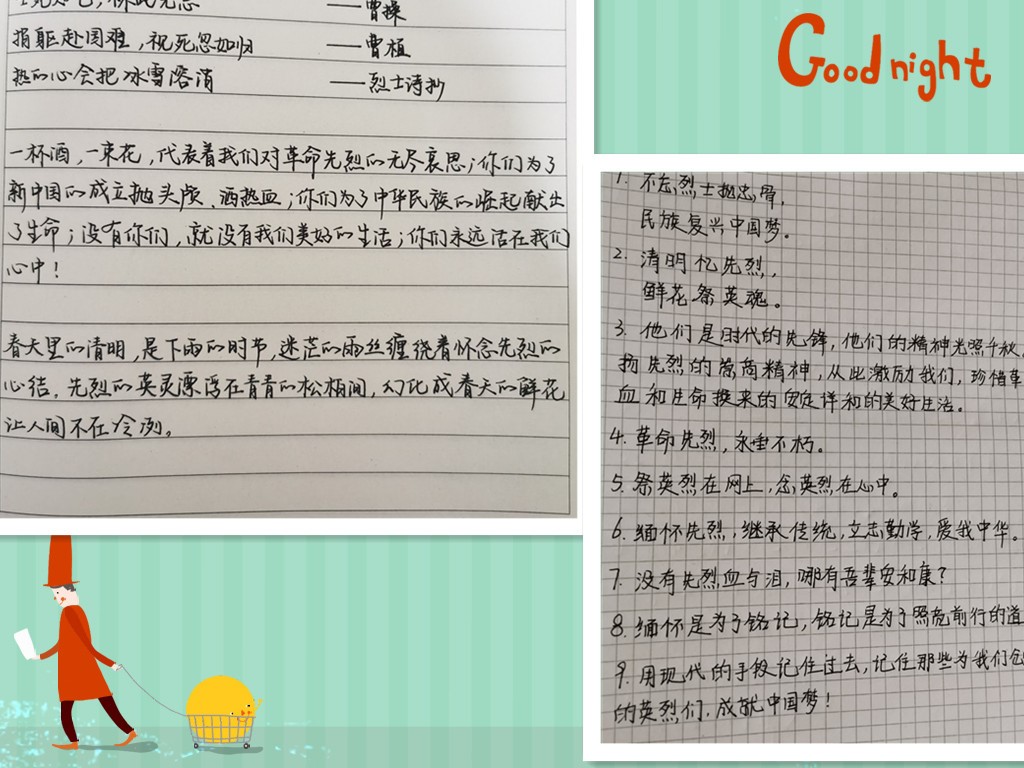 ——曹操
捐躯赴国难，视死忽如归 ——曹植
热的心会把冰雪溶消 ——烈士诗抄
一杯酒，一束花，代表着我们对革命先烈的无尽哀思；你们为了
新中国的成立抛头颅、洒热血；你们为了中华民族的崛起献出
了生命；没有你们，就没有我们美好的生活；你们永远活在我们
心中！
春天里的清明，是下雨的时节，迷茫的雨丝缠绕着怀念先烈的
心结。先烈的英灵漂浮在青青的松柏间，幻化成春天的鲜花
让人间不在冷冽。
Good night
1. 不忘烈士抛忠骨，
民族复兴中国梦。
2. 清明忆先烈，
鲜花祭英魂。
3. 他们是时代的先锋，他们的精神光照千秋，
扬先烈的崇高精神，从此激励我们，珍惜革
血和生命换来的安定详和的美好生活。
4. 革命先烈，永垂不朽。
5. 祭英烈在网上，念英烈在心中。
6. 缅怀先烈，继承传统，立志勤学，爱我中华。
7. 没有先烈血与泪，哪有吾辈安和康？
8. 缅怀是为了铭记，铭记是为了照亮前行的道
9. 用现代的手段记住过去，记住那些为我们创
的英烈们，成就中国梦！